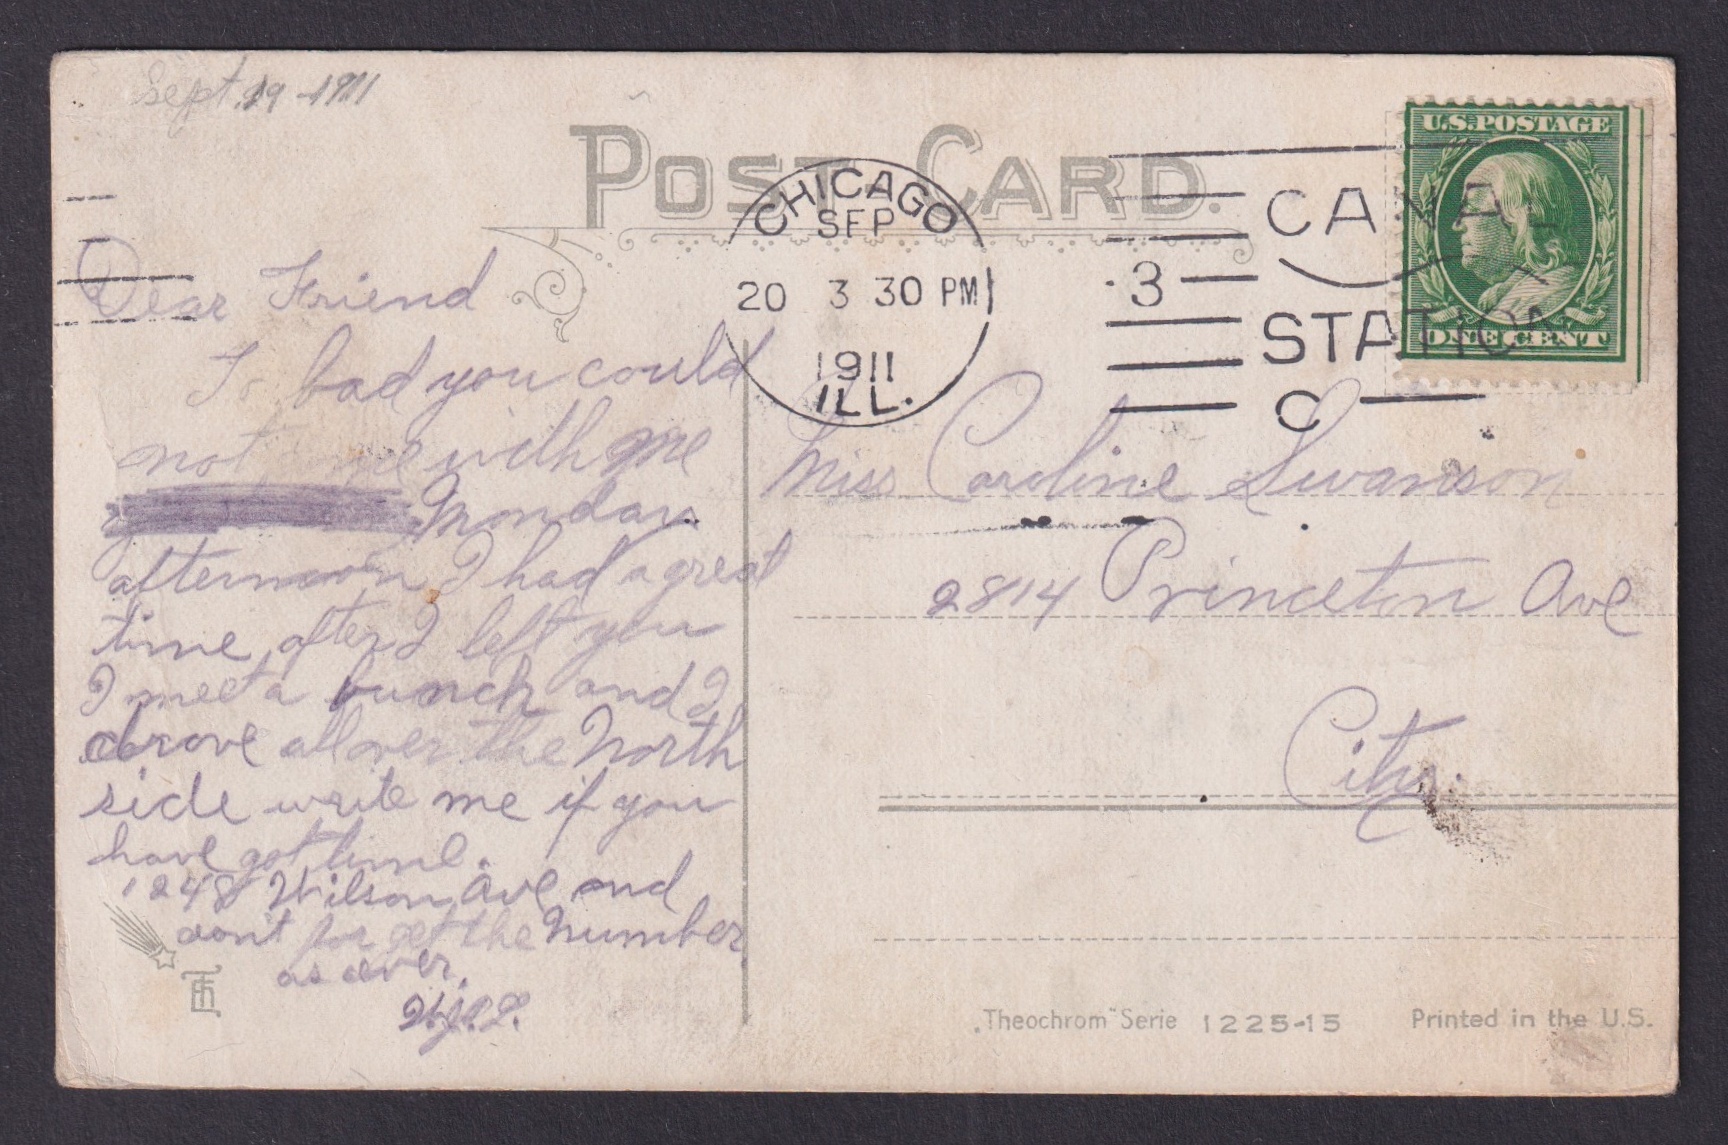 Sept. 19 - 1911
POST CARD.
U.S. POSTAGE
ONE CENT
CHICAGO
SEP
20 3 30 PM
1911
ILL.
CANAL
3
STATION
C
Dear Friend
To bad you could
not come with me
Monday
afternoon I had a great
time after I left you
I meet a bunch and I
drove all over the North
side write me if you
have got time.
1248 Wilson Ave and
dont for get the number
as ever.
Miss Caroline Swanson
2814 Princeton Ave
City.
„Theochrom" Serie 1225-15
Printed in the U.S.